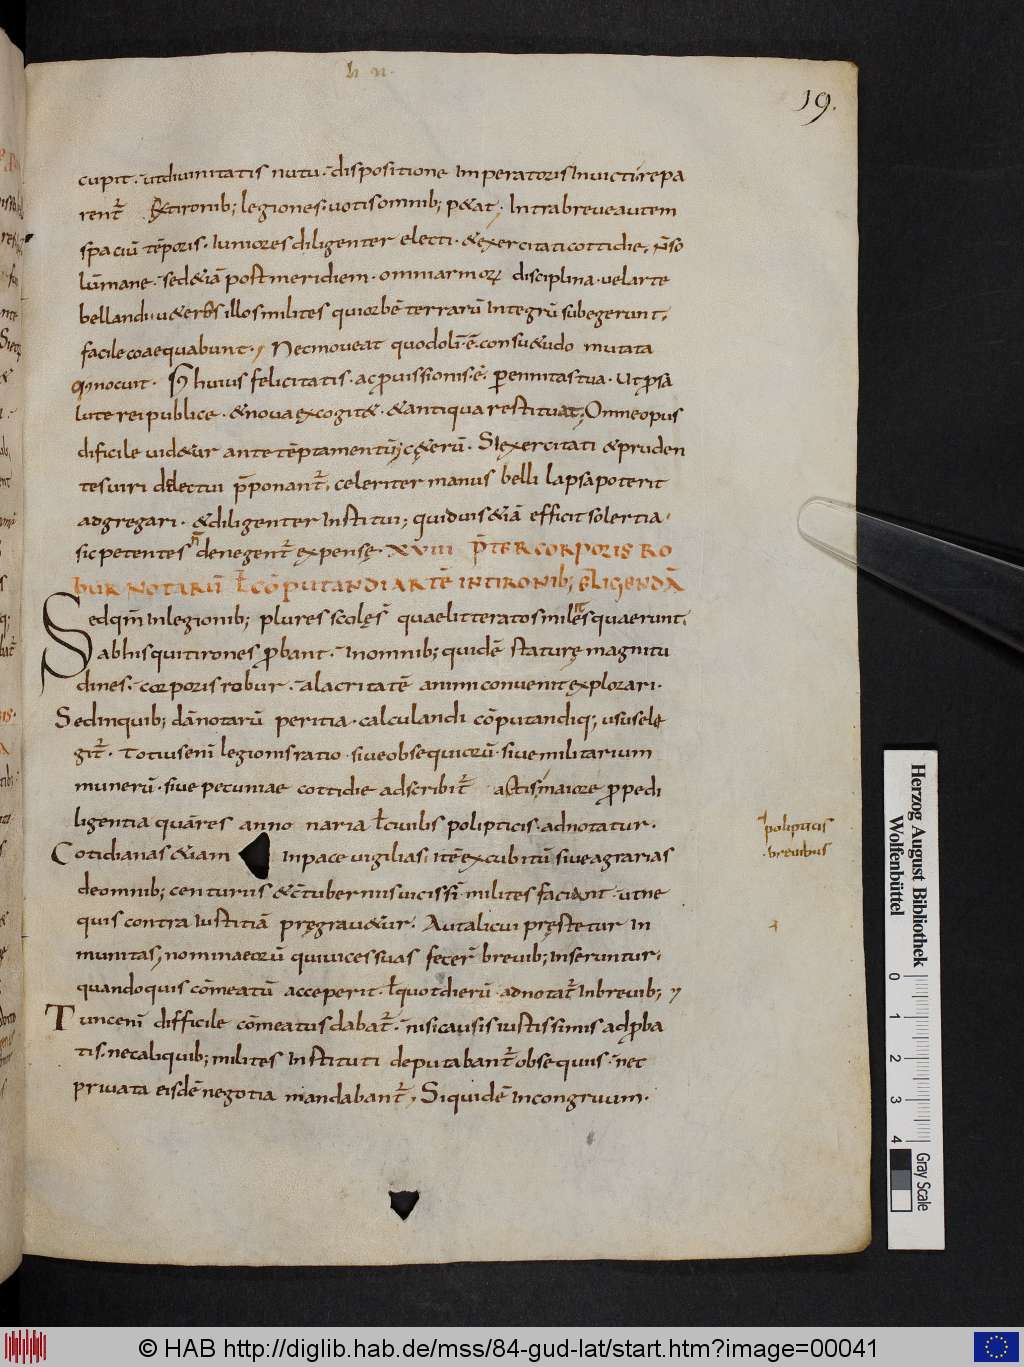 h n.
19.
cupit. ut diuinitatis nutu. dispositione Imperatoris Inuicti. repa
rent̄ Ex tironib; legiones. uotis omnib; p&at. Intra breue autem
spaciū tēporis. Iuniores diligenter electi. & exercitati cottidie. ñ so
lū mane. sed &iā post meridiem. omni armorꝝ disciplina. uel arte
bellandi. u&eres illos milites qui orbē terrarū Integrū subegerunt.
facile coaequabunt. Nec moueat quod olī. ē. consu&udo mutata
quę nocuit. Sed huius felicitatis. ac ꝓuissionis. ē. ꝑennitas tua. Ut ꝓ sa
lute rei publice. & noua excogit&. & antiqua restituat; Omne opus
dificile uid&ur ante tēptamentū; c&erū. Si exercitati & pruden
tes uiri delectui p̄ponant̄. celeriter manus belli lapsa poterit
adgregari. & diligenter Institui; quiduis &iā efficit solertia.
sic petentes ñ denegent̄ expensę. XVIII P̄TER CORPORIS RO
BUR NOTARŪ ł CŌPUTANDI ARTĒ IN TIRONIB; ELIGENDĀ
Sed qm̄ In legionib; plures scolę s̄ quae litteratos milites quaerunt.
ab his qui tirones ꝓbant. In omnib; quidē staturę magnitu
dines. corporis robur. alacritatē animi conuenit explorari.
Sed in quib; dā notarū peritia. calculandi cōputandiq; usus elę
git̄. Totius enī legionis ratio. siue obsequiorū. siue militarium
munerū. siue pecuniae cottidie adscribit̄ actis, maiore ꝓpe di
ligentia quā res anno naria ł ciuilis polipticis. adnotatur.
Cotidianas &iam In pace uigilias. itē excubitū siue agrarias
de omnib; centuriis & c̄tuberniis uicissī. milites faciant. ut ne
quis contra Iustitiā pręgrau&ur. Aut alicui pręstetur In
munitas, nomina eorū qui uices suas fecer̄ breuib; Inseruntur.
quando quis cōmeatū acceperit. ł quot dierū adnotat̄ In breuib;
Tunc enī difficile cōmeatus dabat̄. nisi causis iustissimis adꝓba
tis. nec aliquib; milites Instituti deputabant̄ obsequiis. nec
priuata eisdē negotia mandabant̄, Siquidē Incongruum.
polipticis
breuibus
Herzog August Bibliothek
Wolfenbüttel
0 1 2 3 4
Gray Scale
© HAB http://diglib.hab.de/mss/84-gud-lat/start.htm?image=00041